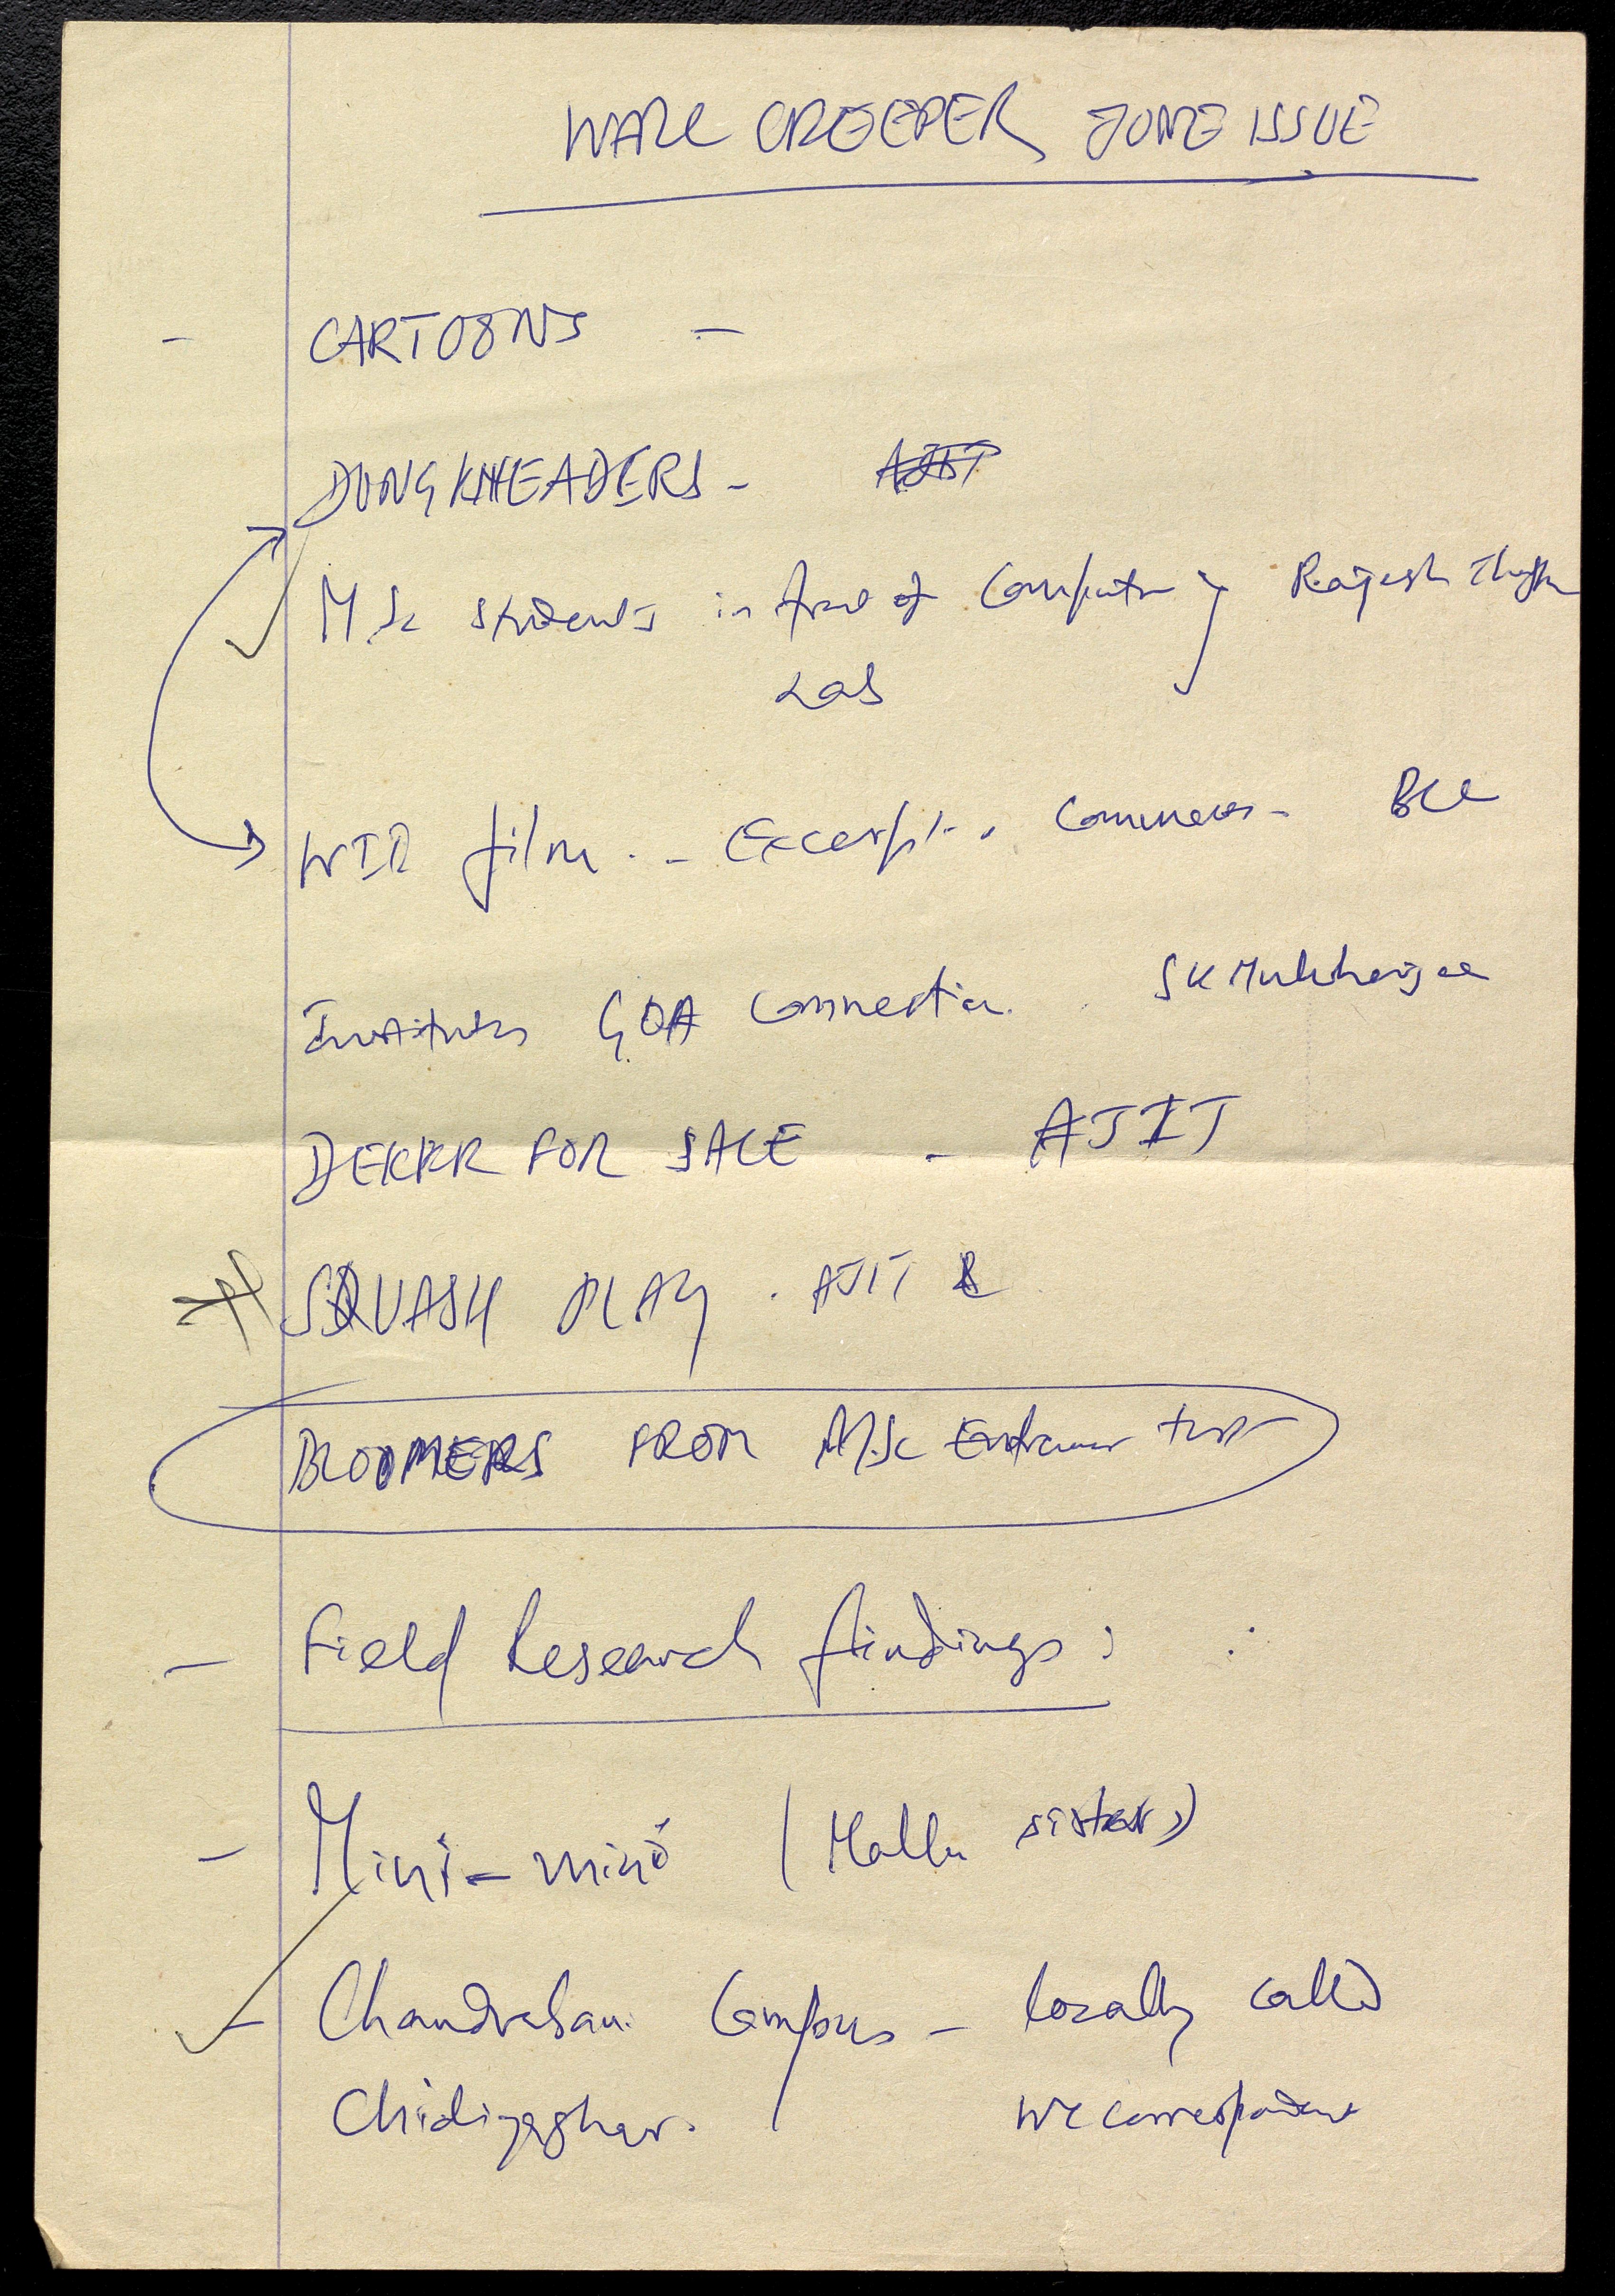 WALL CREEPER JUNE ISSUE
- CARTOONS -
DUNGKHEADERS - AJIT
MSc students in front of Computer } Rajesh
Lab
WII film - Excerpts, Comments - BCC
Institutes GOA Connection. SK Mukherjee
FOR SALE - AJIT
SQUASH PLAY. AJIT &
BLOOMERS FROM M.Sc Entrance test
- Field Research findings:
- Mini-mini (Mallu sisters)
- Chandrabani Campus - locally called
Chidiyaghar. WC correspondent